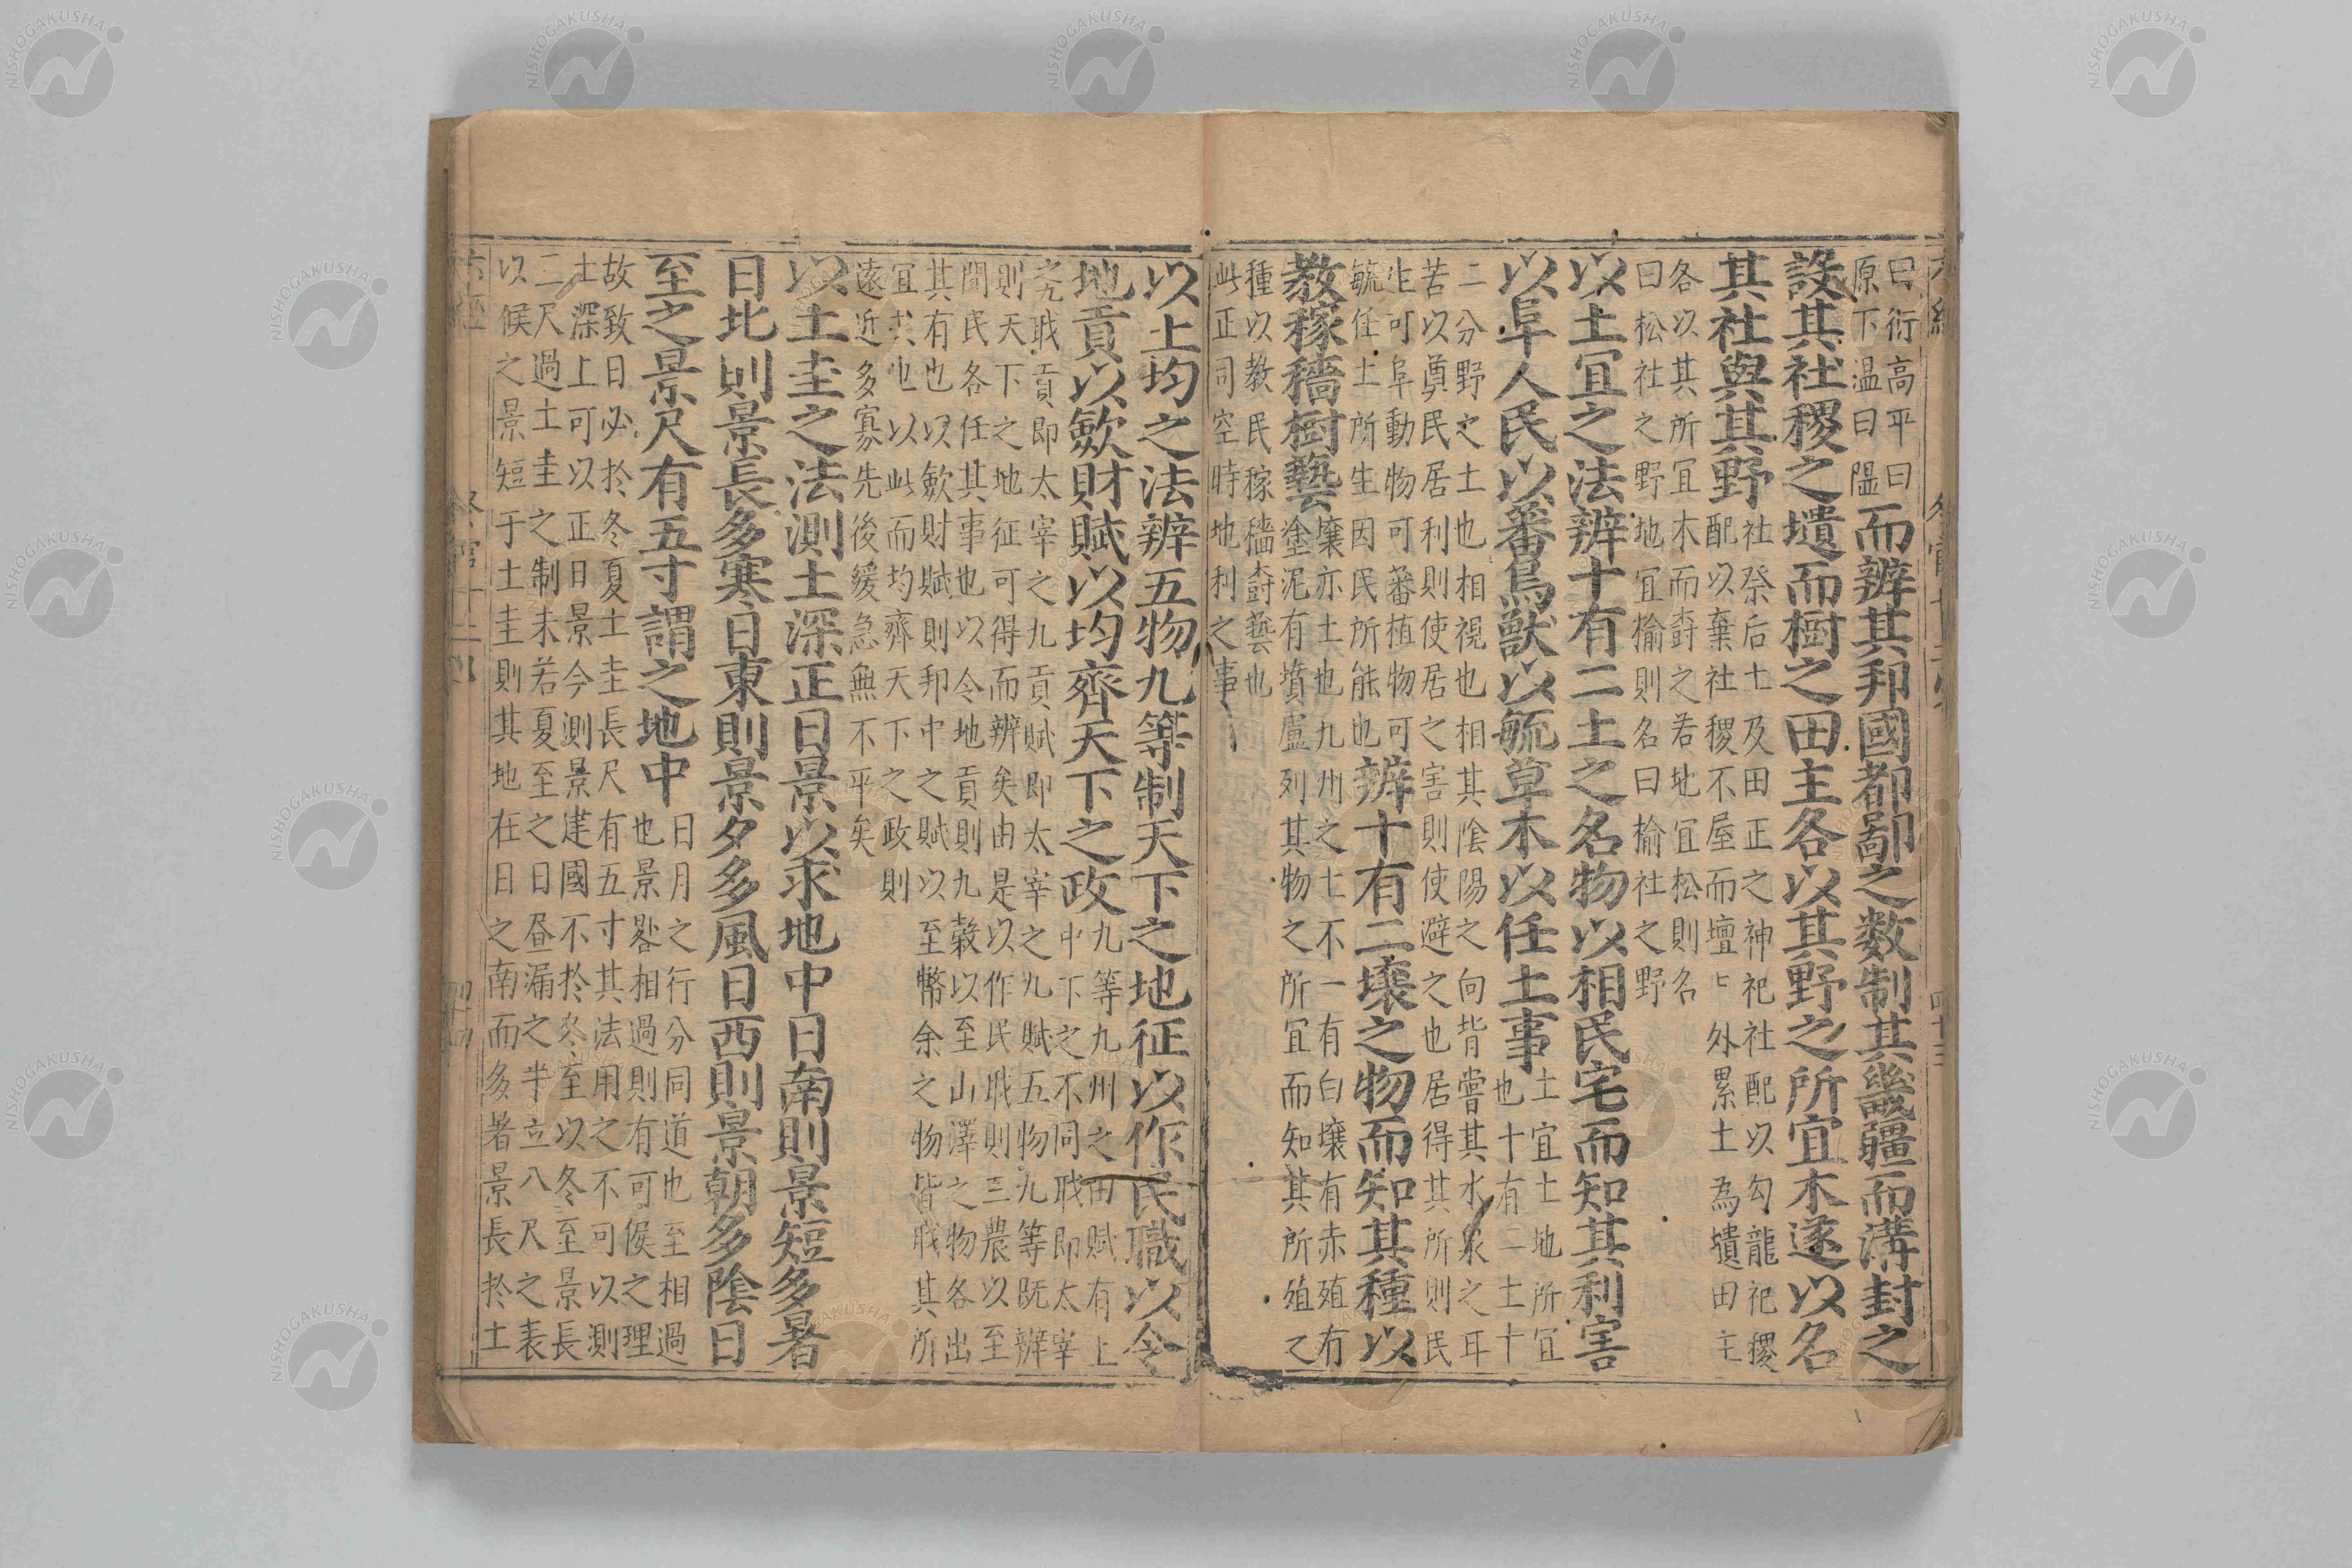 曰衍高平曰
原下温曰隰
而辨其邦國都鄙之数制其畿疆而溝封之
設其社稷之壝而樹之田主各以其野之所宜木遂以名
其社與其野
社祭后土及田正之神祀社配以勾龍祀稷
配以棄社稷不屋而壇〻外累土為壝田主
各以其所宜木而樹之若地宜松則名
曰松社之野地宜榆則名曰榆社之野
以土宜之法辨十有二土之名物以相民宅而知其利害
以阜人民以蕃鳥獸以毓草木以任土事
土宜土地所宜
也十有二土十
二分野之土也相視也相其陰陽之向背嘗其水泉之耳
苦以奠民居利則使居之害則使避之也居得其所則民
生可阜動物可蕃植物可
毓任土所生因民所能也
辨十有二壤之物而知其種以
教稼穡樹藝
壤亦土也九州之土不一有白壤有赤殖有
塗泥有墳盧列其物之所宜而知其所殖之
種以教民稼穡樹藝也
此正司空時地利之事
以土均之法辨五物九等制天下之地征以作民職以令
地貢以斂財賦以均齊天下之政
九等九州之田賦有上
中下之不同职即太宰
之九职貢即太宰之九貢賦即太宰之九賦五物九等既辨
則天下之地征可得而辨矣由是以作民职則三農以至
間民各任其事也以令地貢則九榖以至山澤之物各出
其有也以斂財賦則邦中之賦以至幣余之物皆职其所
宜者也以此而均齊天下之政則
遠近多寡先後緩急無不平矣
以土圭之法測土深正日景以求地中日南則景短多暑
日北則景長多寒日東則景夕多風日西則景朝多陰日
至之景尺有五寸謂之地中
日月之行分同道也至相過
也景畧相過則有可候之理
故致日必於冬夏土圭長尺有五寸其法用之不可以測
土深上可以正日景今測景建國不於冬至以冬至景長
二尺過土圭之制未若夏至之日昼漏之半立八尺之表
以候之景短于土圭則其地在日之南而多暑景長於土